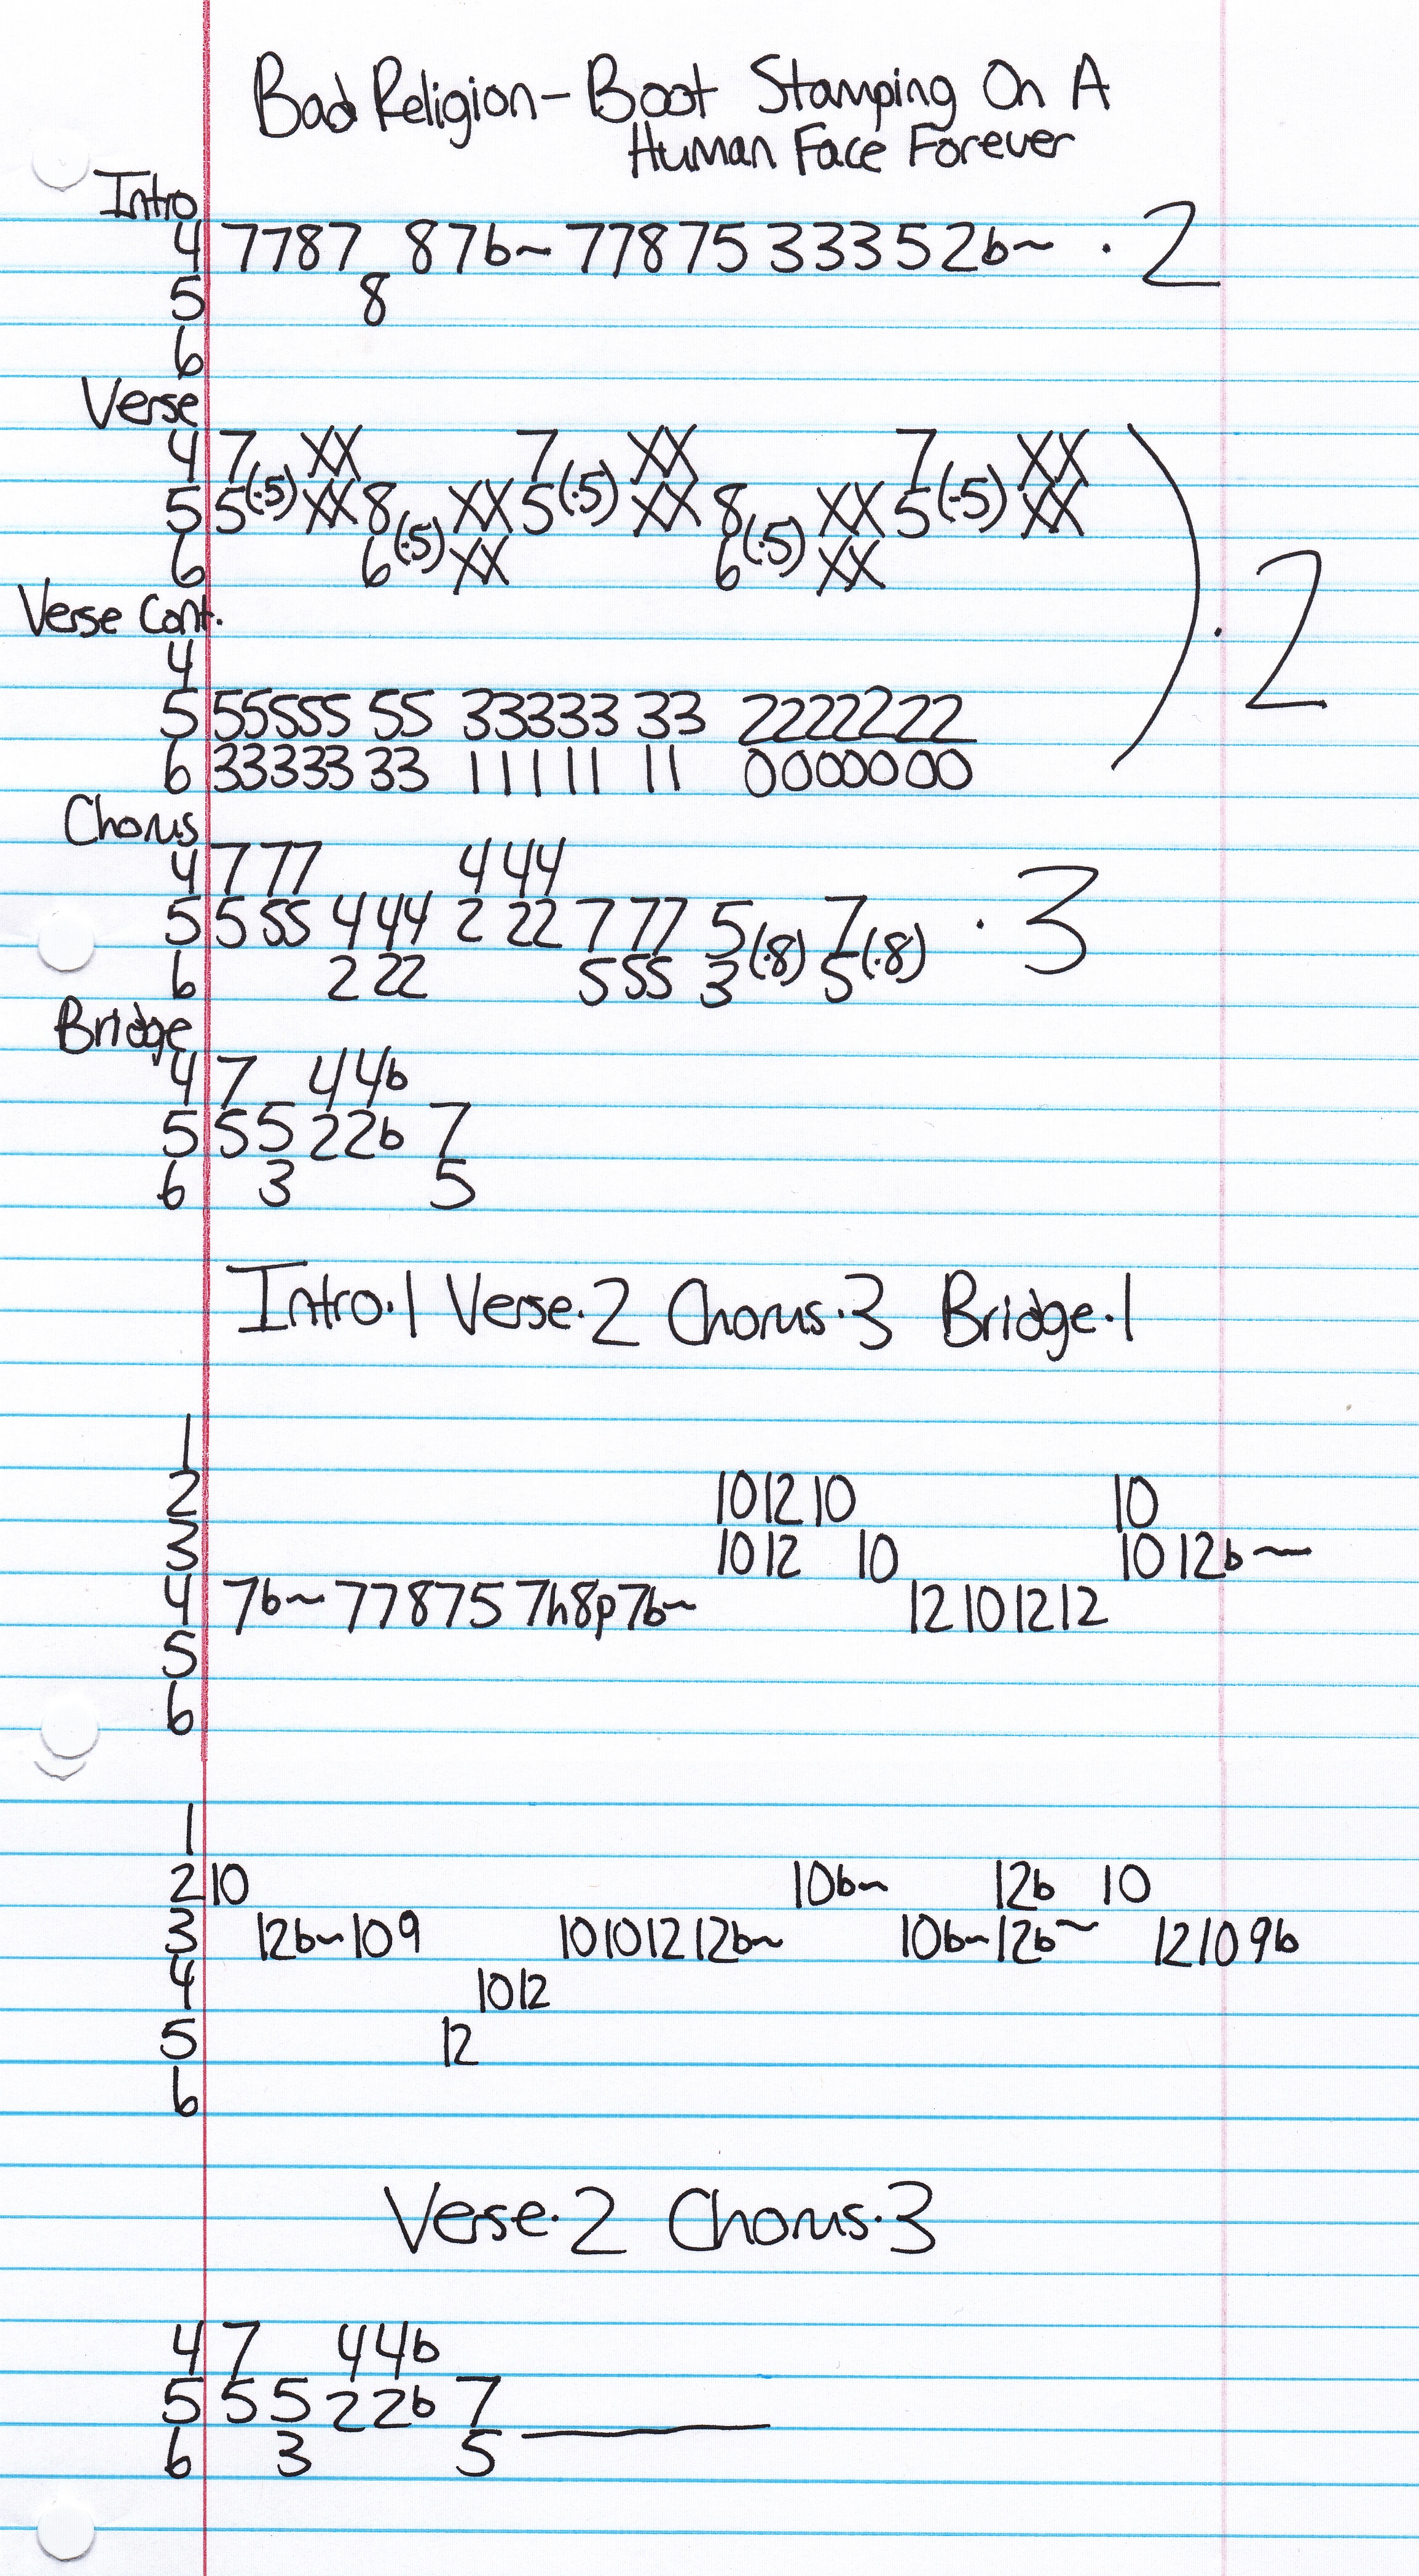 Bad Religion - Boot Stamping On A
Human Face Forever
Intro
4 7787 876~ 77875 3335 2b~ · 2
5 8
6
Verse
4 7 XX 7 XX 7 XX
5 5(·5) XX 8 XX 5(·5) XX 8 XX 5(·5) XX ) · 2
6 6(·5) XX 6(·5) XX
Verse Cont.
4
5 55555 55 33333 33 2222222
6 33333 33 11111 11 0000000
Chorus
4 7 77 4 44
5 5 55 4 44 2 22 7 77 5(·8) 7(·8) · 3
6 2 22 5 55 3 5
Bridge
4 7 4 4b
5 5 5 2 2b 7
6 3 5
Intro·1 Verse·2 Chorus·3 Bridge·1
1
2 10 12 10 10
3 10 12 10 10 12b~
4 7b~ 77875 7h8p7b~ 12 10 12 12
5
6
1
2 10 10b~ 12b 10
3 12b~ 10 9 10 10 12 12b~ 10b~ 12b~ 12 10 9b
4 10 12
5 12
6
Verse·2 Chorus·3
4 7 4 4b
5 5 5 2 2b 7
6 3 5